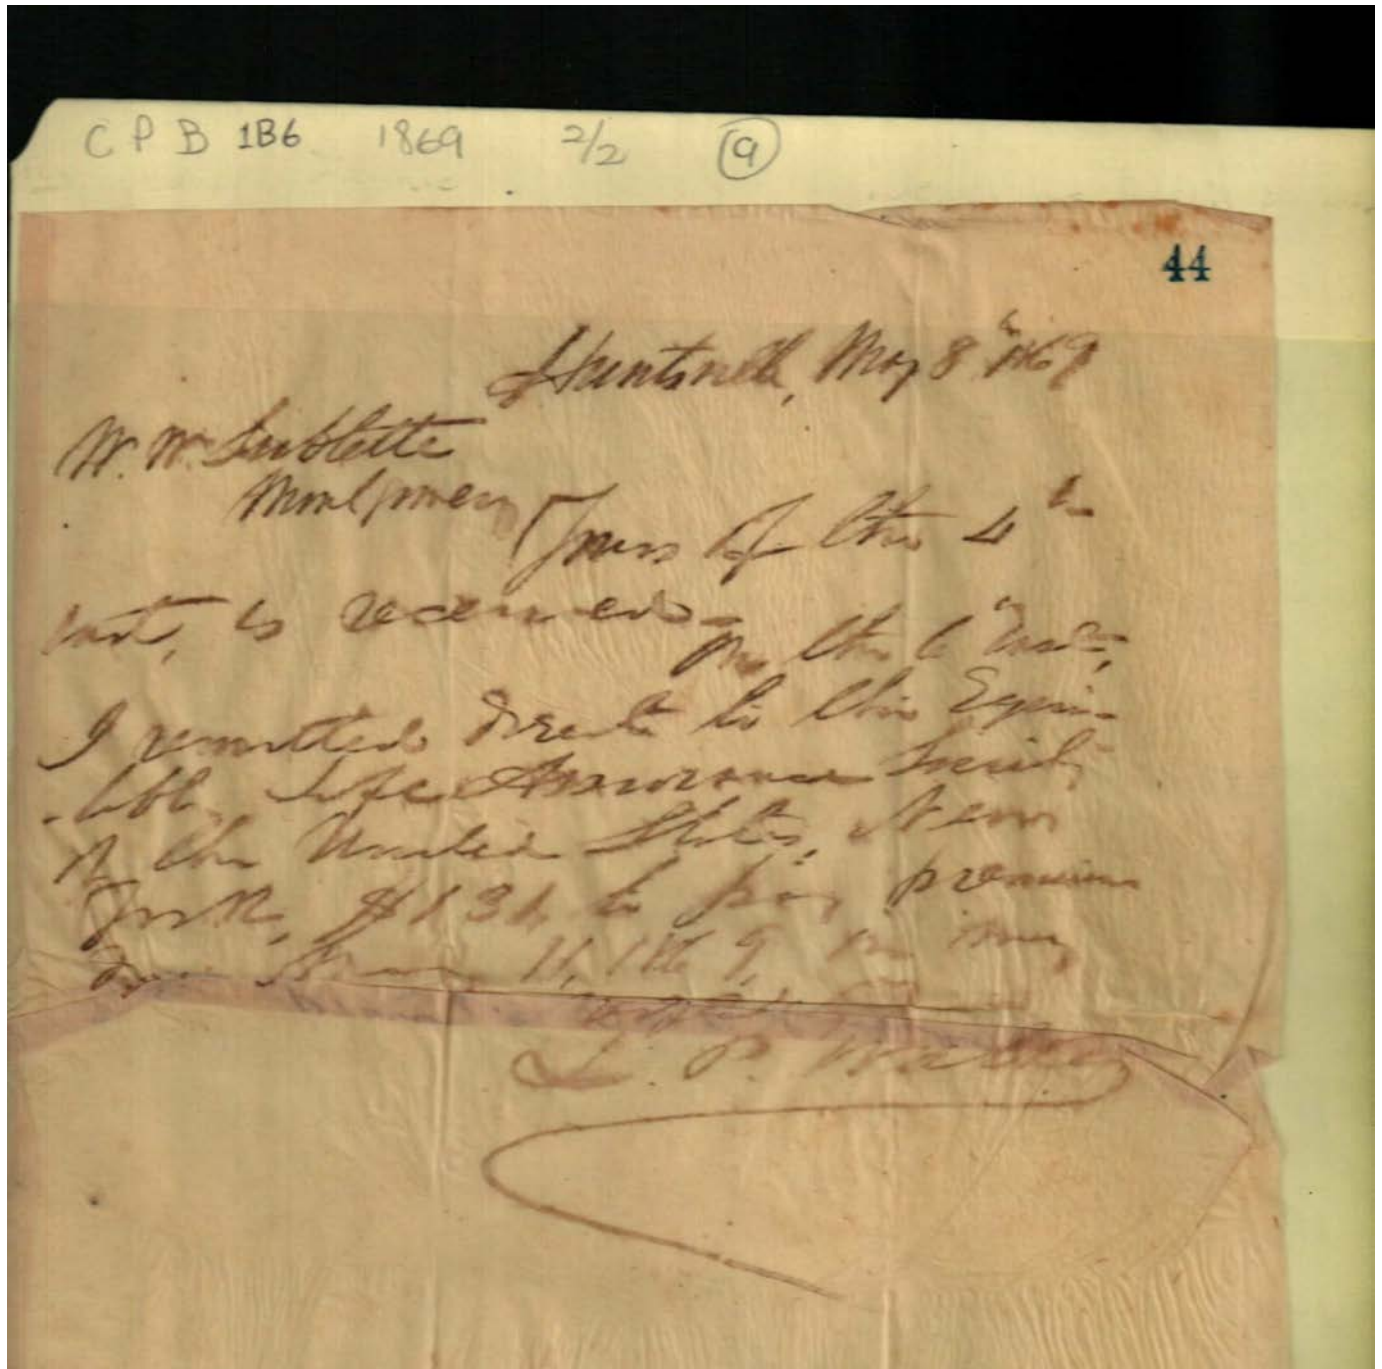 C P B 1B6 1869 2/2 9
44
Huntsville, May 8th 1869
W. W. Sublette
Montgomery
Yours of the 4th
inst, is received.
On the 6th inst,
I remitted direct to the Equi-
-table Life Assurance Society
of the United States, New
York, $ to pay premium
due 11, 1869, on my
L. P. Walker